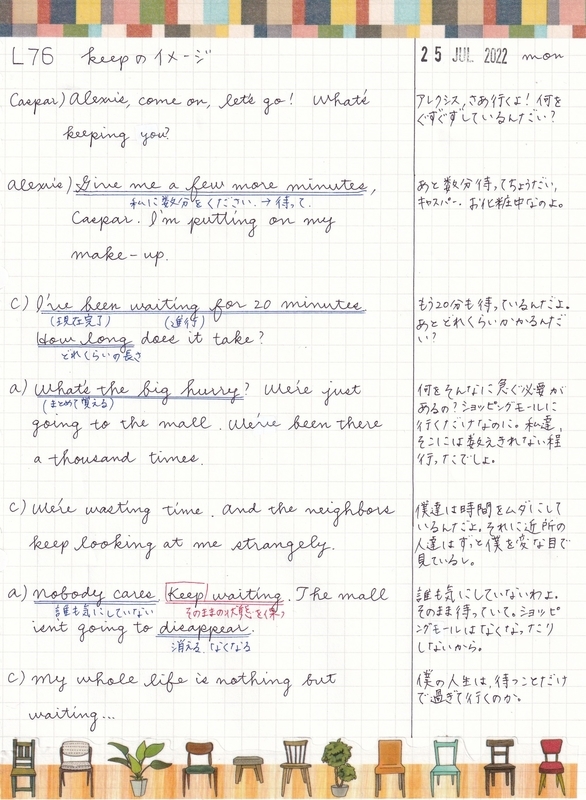 L76 keepのイメージ
25 JUL 2022 mon
Caspar) Alexis, come on, let's go! What's
keeping you?
アレクシス、さあ行くよ！何を
ぐずぐずしているんだい？
Alexis) Give me a few more minutes,
私に数分をください。→待って。
Caspar. I'm putting on my
make-up.
あと数分待ってちょうだい、
キャスパー。お化粧中なのよ。
C) I've been waiting for 20 minutes
(現在完了) (進行)
How long does it take?
どれくらいの長さ
もう20分も待っているんだよ。
あとどれくらいかかるんだ
い？
a) What's the big hurry? We're just
(まとめて覚える)
going to the mall. We've been there
a thousand times.
何をそんなに急ぐ必要が
あるの？ショッピングモールに
行くだけなのに。私達、
そこには数えきれない程
行ったでしょ。
C) We're wasting time. And the neighbors
keep looking at me strangely.
僕達は時間をムダにして
いるんだよ。それに近所の
人達はずっと僕を変な目で
見ているし。
a) Nobody cares. Keep waiting. The mall
誰も気にしていない そのままの状態を保つ
isn't going to disappear.
消える、なくなる
誰も気にしていないわよ。
そのまま待っていて。ショッピ
ングモールはなくなったり
しないから。
C) My whole life is nothing but
waiting...
僕の人生は、待つことだけ
で過ぎて行くのか。